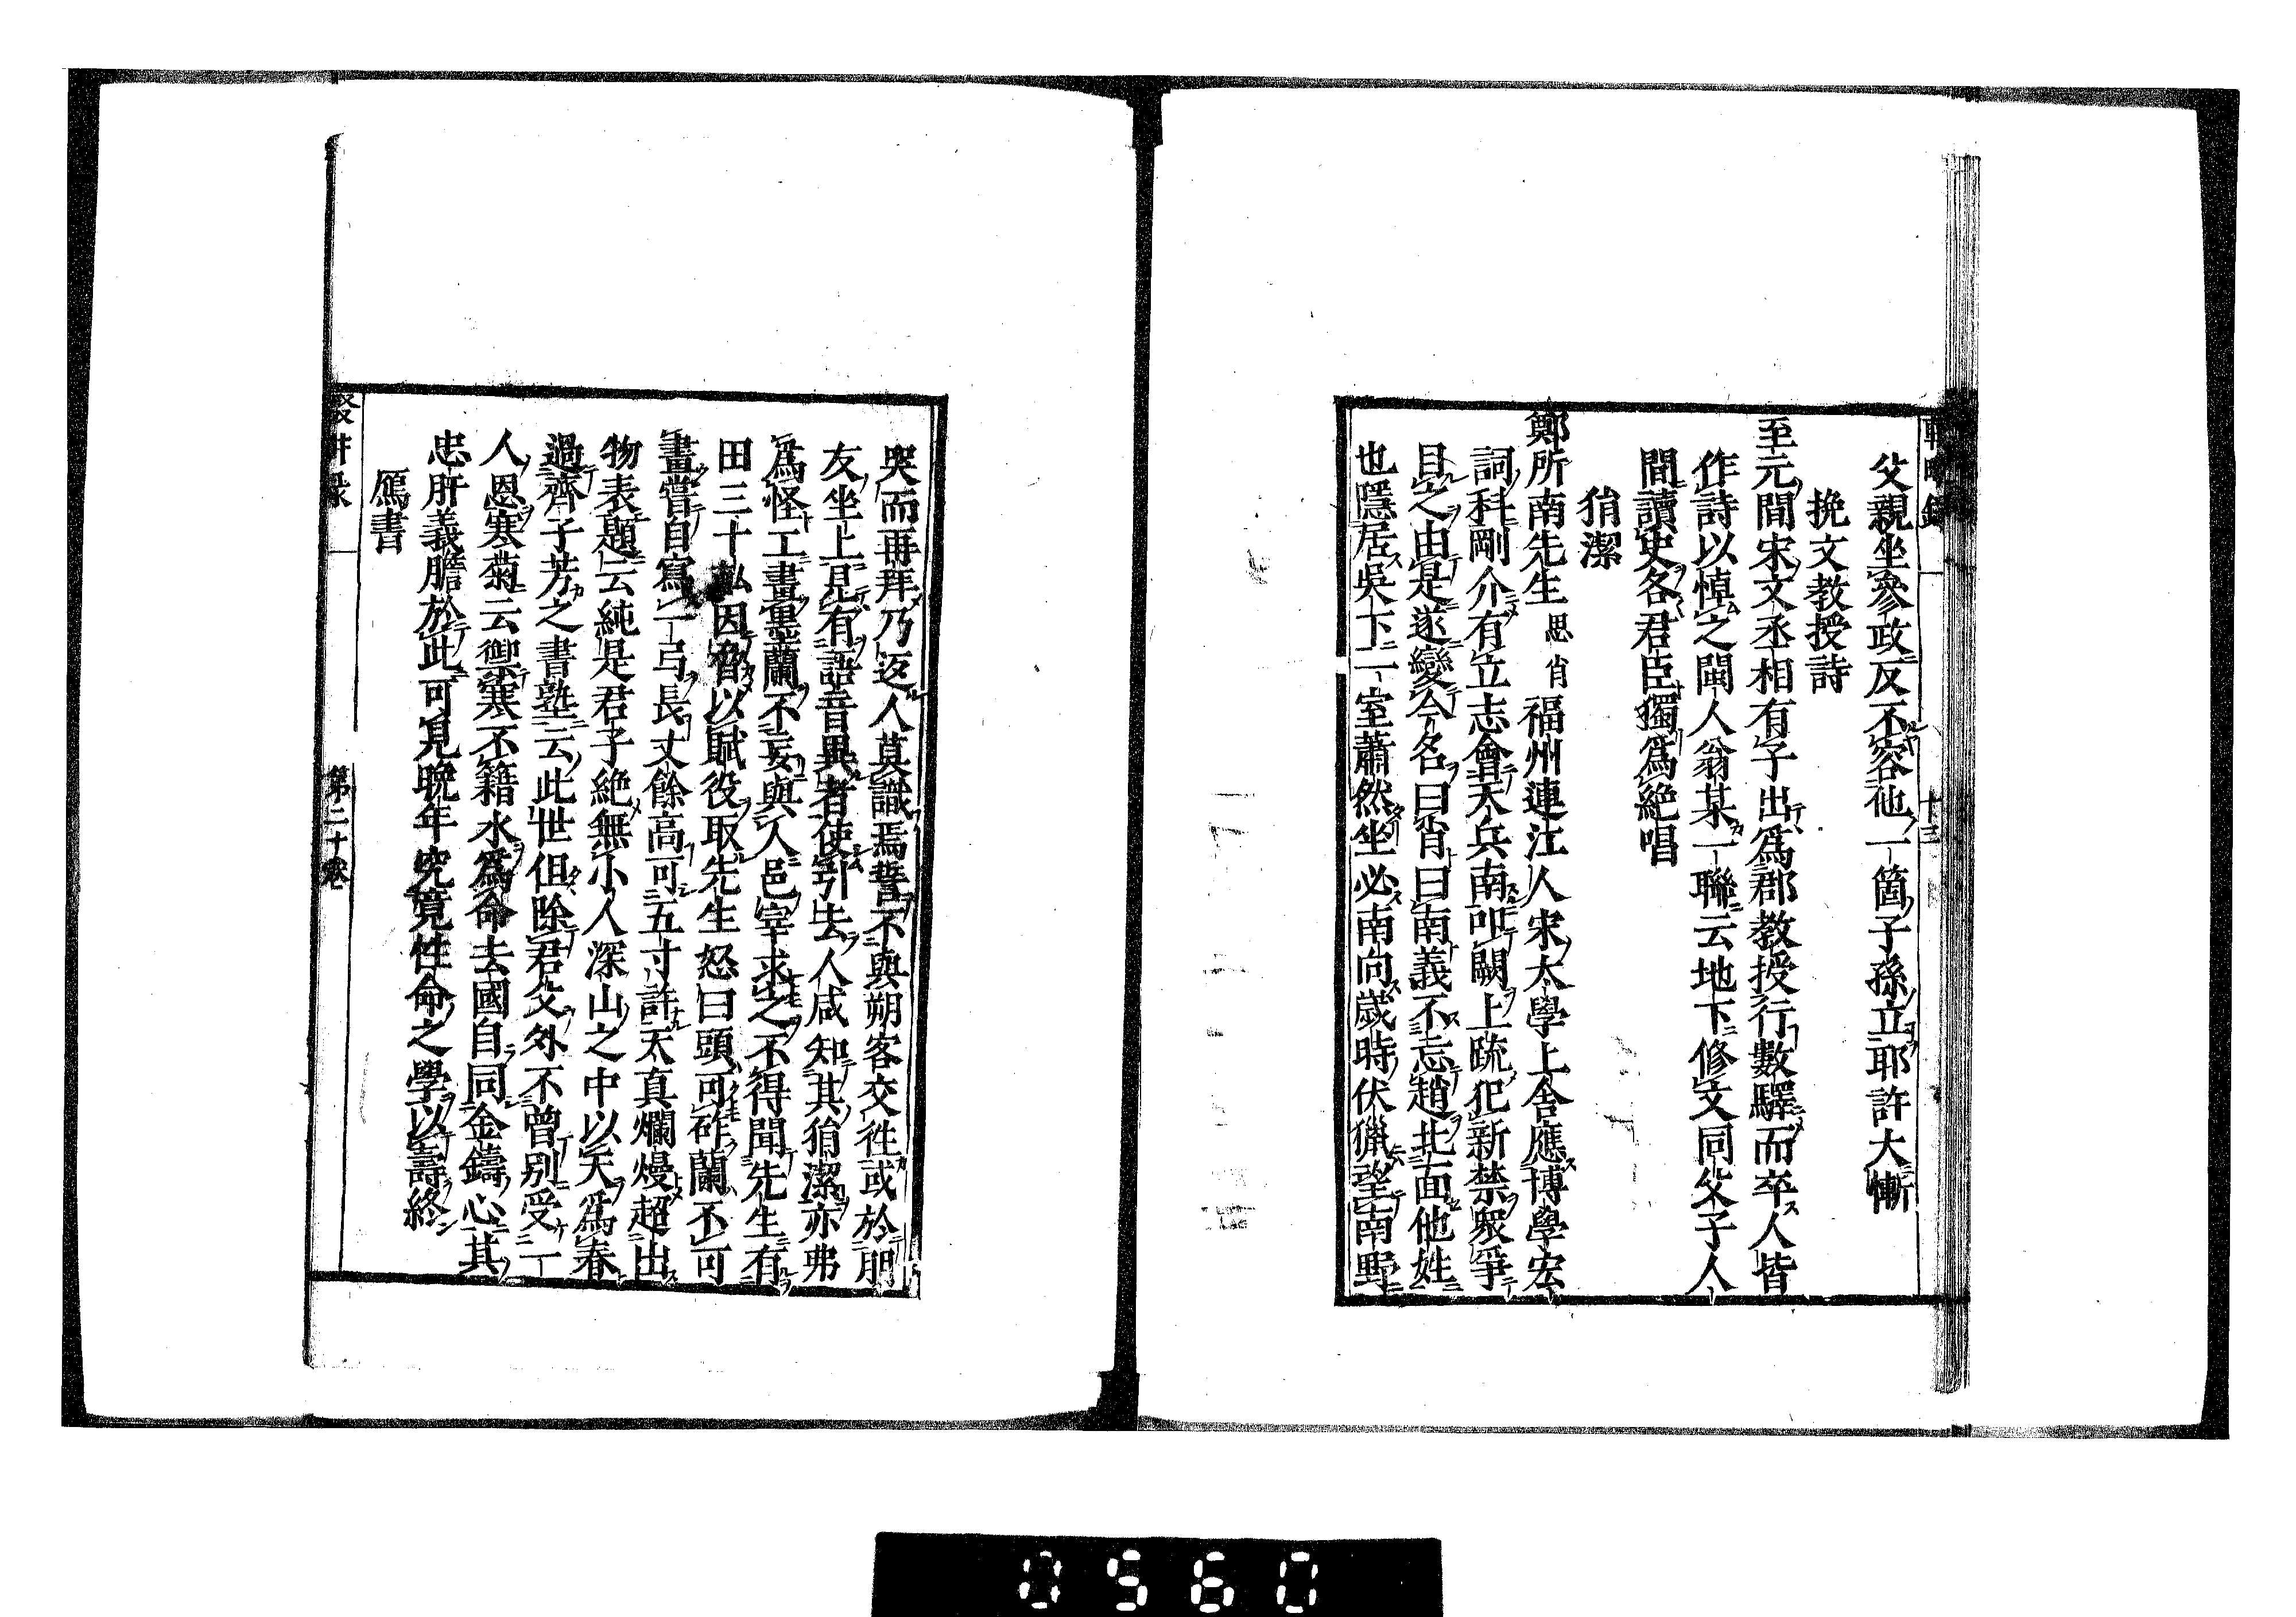 父親坐參政反不容他一箇子孫立耶許大慚
挽文教授詩
至元間宋文丞相有子出爲郡教授行數驛而卒人皆
作詩以悼之閩人翁某一聯云地下修文同父子人
間讀史各君臣獨爲絶唱
狷潔
鄭所南先生思肖福州連江人宋太學上舍應博學宏
詞科剛介有立志會天兵南叩闕上疏犯新禁衆爭
目之由是遂變今名曰肖曰南義不忘趙北面他姓
也隱居吳下一室蕭然坐必南向歲時伏獵望南野
哭而再拜乃返人莫識焉誓不與朔客交往或於朋
友坐上見有語音異者使引去人咸知其狷潔亦弗
爲怪工畫墨蘭不妄與人邑宰求之不得聞先生有
田三十畝因脅以賦役取先生怒曰頭可斫蘭不可
畫嘗自寫一丂長丈餘高可五寸許天真爛熳超出
物表題云純是君子絶無小人深山之中以天爲春
過齊子芳之書塾云此世但除君父外不曾別受一
人恩寒菊云禦寒不籍水爲命去國自同金鑄心其
忠肝義膽於此可見晚年究竟性命之學以壽終
鴈書
第二十卷